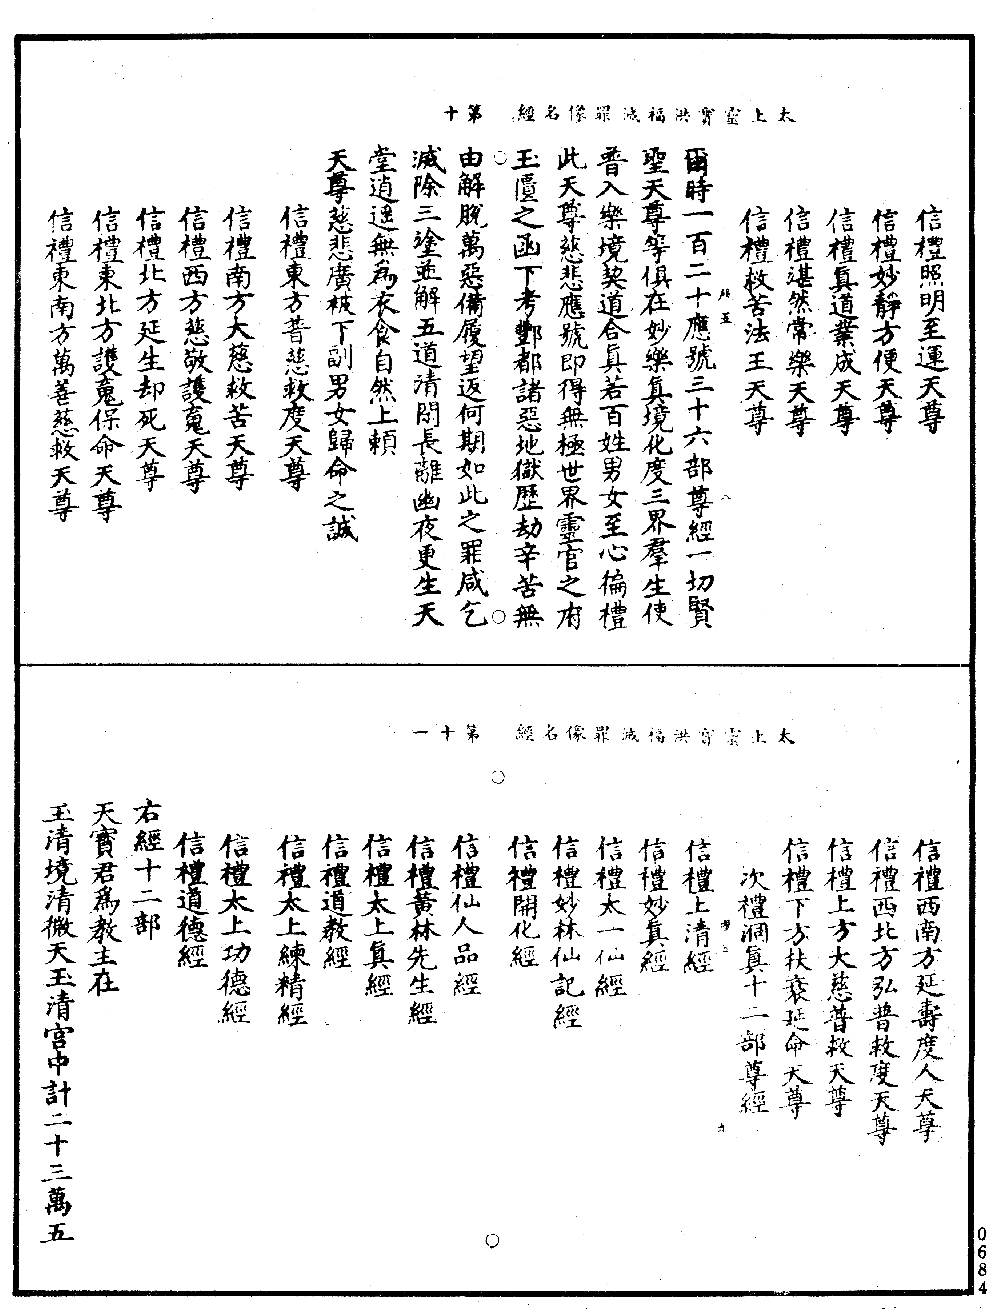 太上靈寶洪福滅罪像名經 第十
信禮照明至運天尊
信禮妙靜方便天尊
信禮真道業成天尊
信禮湛然常樂天尊
信禮救苦法王天尊
爾時一百二十應號三十六部尊經一切賢
聖天尊等俱在妙樂真境化度三界羣生使
普入樂境契道合真若百姓男女至心徧禮
此天尊慈悲應號即得無極世界靈官之府
玉匱之函下考酆都諸惡地獄歷劫辛苦無
由解脫萬惡備履望返何期如此之罪咸乞
滅除三塗並解五道清閑長離幽夜更生天
堂逍遙無為衣食自然上賴
天尊慈悲廣被下副男女歸命之誠
信禮東方普慈救度天尊
信禮南方大慈救苦天尊
信禮西方慈敬護䰟天尊
信禮北方延生却死天尊
信禮東北方護䰟保命天尊
信禮東南方萬善慈救天尊
太上靈寶洪福滅罪像名經 第十一
信禮西南方延壽度人天尊
信禮西北方弘普救度天尊
信禮上方大慈普救天尊
信禮下方扶衰延命天尊
次禮洞真十二部尊經
信禮上清經
信禮妙真經
信禮太一仙經
信禮妙林仙記經
信禮開化經
信禮仙人品經
信禮黃林先生經
信禮太上真經
信禮道教經
信禮太上練精經
信禮太上功德經
信禮道德經
右經十二部
天寶君為教主在
玉清境清微天玉清宮中計二十三萬五
0684